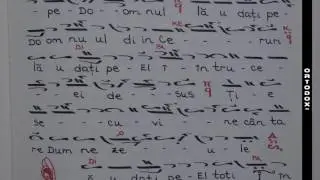 pe-Do - om nul lă u daţi pe-
Do om nu ul din Ce - - - runi
lă u daţi pe-El în tru ce
ei de - sus Ţi e
se - cu vi - ne cân ta
re Dum ne ze - u - le
ă u daţi pe-El toţi
ORTODOX-